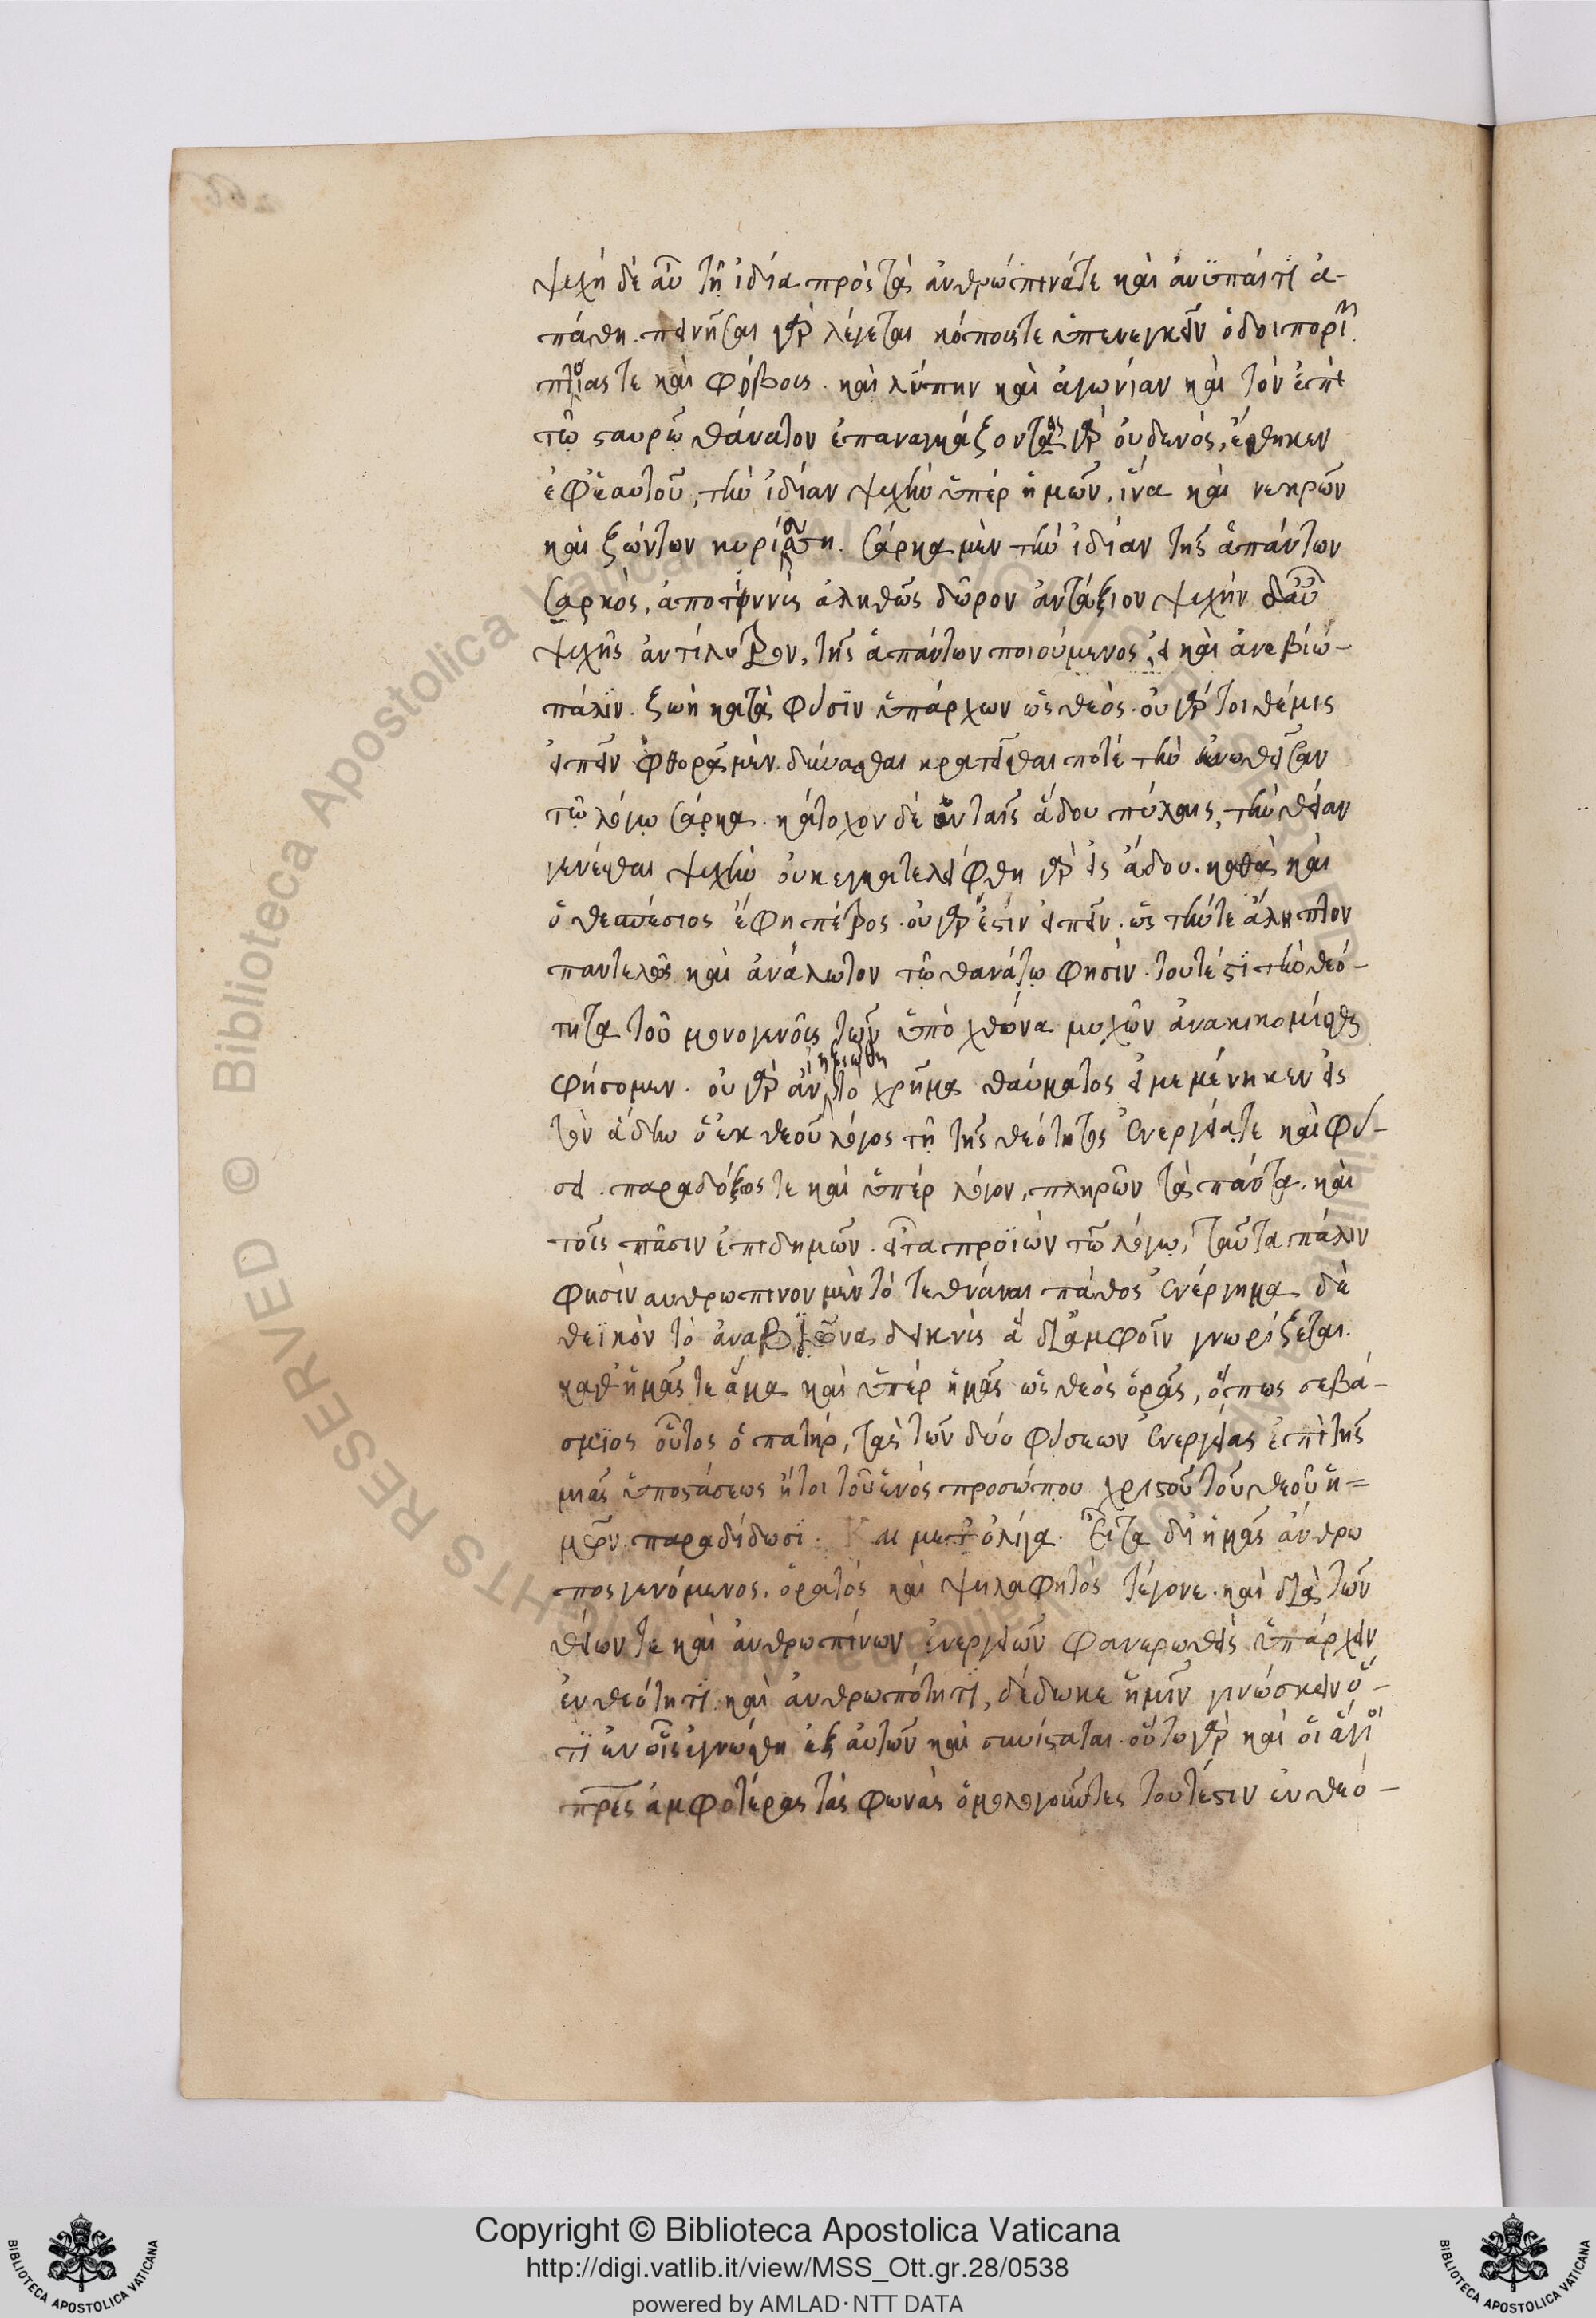 ψυχῆ δὲ αὖ τῇ ἰδία πρὸς τὰ ἀνθρώπινάτε καὶ ἀνϋπαίτϊ ἀ-
πάθη. πεινῆσαι γὰρ λέγεται κόπουςτε ὑπενεγκεῖν ὁδοιπορι
πτοίας τε καὶ φόβους. καὶ λύπην καὶ ἀγωνίαν καὶ τὸν ἐπὶ
τῶ σταυρῶ θάνατον ἐπαναγκάζοντος γὰρ οὐδενὸς, ἔθηκεν
ἐφ' ἑαυτοῦ, τὴν ἰδίαν ψυχὴν ὑπὲρ ἡμῶν, ἵνα καὶ νεκρῶν
καὶ ζώντων κυριεύση. σάρκα μὲν τὴν ἰδίαν τῆς ἁπάντων
σαρκὸς, ἀποτιννὺς ἀληθῶς δῶρον ἀντάξιον ψυχὴν δ' αὖ
ψυχῆς ἀντίλυτρον, τῆς ἁπάντων ποιούμενος, εἰ καὶ ἀνεβίω-
πάλιν. ζωὴ κατὰ φύσϊν ὑπάρχων ὡς θεὸς. οὐ γάρ τοι θέμις
εἰπεῖν φθορᾶ μὲν δύνασθαι κρατεῖσθαι ποτὲ τὴν ἑνωθεῖσαν
τῶ λόγω σάρκα. κάτοχον δὲ ἐν ταῖς ἅδου πύλαις, τὴν θείαν
γενέσθαι ψυχὴν οὐκ εγκατελείφθη γὰρ εἰς ἅδου. καθὰ καὶ
ὁ θεσπέσιος ἔφη πέτρος. οὐ γὰρ ἐστὶν εἰπεῖν. ὡς τήν τε ἄληπτον
παντελῶς καὶ ἀνάλωτον τῶ θανάτω φησὶν. τουτέστϊ τὴν θεό-
τητα τοῦ μονογενοῦς τῶν ὑπὸ χθόνα μυχῶν ἀνακεκομίσθαι
φήσομεν. οὐ γὰρ ἂν ἠξιώθη τὸ χρῆμα θαύματος εἰ μεμένηκεν εἰς
τὸν ἅδην ὁ ἐκ θεοῦ λόγος τῆ τῆς θεότητος ἐνεργείατε καὶ φύ-
σει. παραδόξως τε καὶ ὑπὲρ λόγον, πληρῶν τὰ πάντα. καὶ
τοῖς πᾶσιν ἐπιδημῶν. εἶτα προϊὼν τῶ λόγω, ταῦτα πάλιν
φησὶν ανθρωπινον μὲν τὸ τεθνάναι πάθος ἐνέργημα δὲ
θεϊκὸν τὸ ἀναβιῶναι δεικνὺς ἃ δι' ἀμφοῖν γνωρίζεται.
καθ' ἡμᾶς τε ἅμα καὶ ὑπὲρ ἡμᾶς ὡς θεὸς ὁρᾶς, ὅπως σεβά-
σμϊος οὗτος ὁ πατὴρ, τὰς τῶν δύο φύσεων ἐνεργείας ἐπὶ τῆς
μιᾶς ὑποστάσεως ἤτοι τοῦ ἑνὸς προσώπου χριστοῦ τοῦ θεοῦ ἡ=
μῶν παραδίδωσϊ. Και μετ' ὀλίγα. Εἶτα δι' ἡμᾶς ἄνθρω
πος γενόμενος. ὁρατὸς καὶ ψηλαφητὸς γέγονε. καὶ διὰ τῶν
θείων τε καὶ ἀνθρωπίνων ἐνεργειῶν φανερωθεὶς ὑπάρχειν
ἐν θεότητϊ καὶ ἀνθρωπότητϊ, δέδωκε ἡμῖν γινώσκειν ὅ-
τϊ ἐν οἷς ἐγνώσθη ἐξ αὐτῶν καὶ συνίσταται. οὕτο γὰρ καὶ οἱ ἅγιοι
πρες ἀμφοτέρας τὰς φωνὰς ὁμολογοῦντες τουτέστιν ἐν θεό-
Copyright © Biblioteca Apostolica Vaticana
http://digi.vatlib.it/view/MSS_Ott.gr.28/0538
powered by AMLAD·NTT DATA